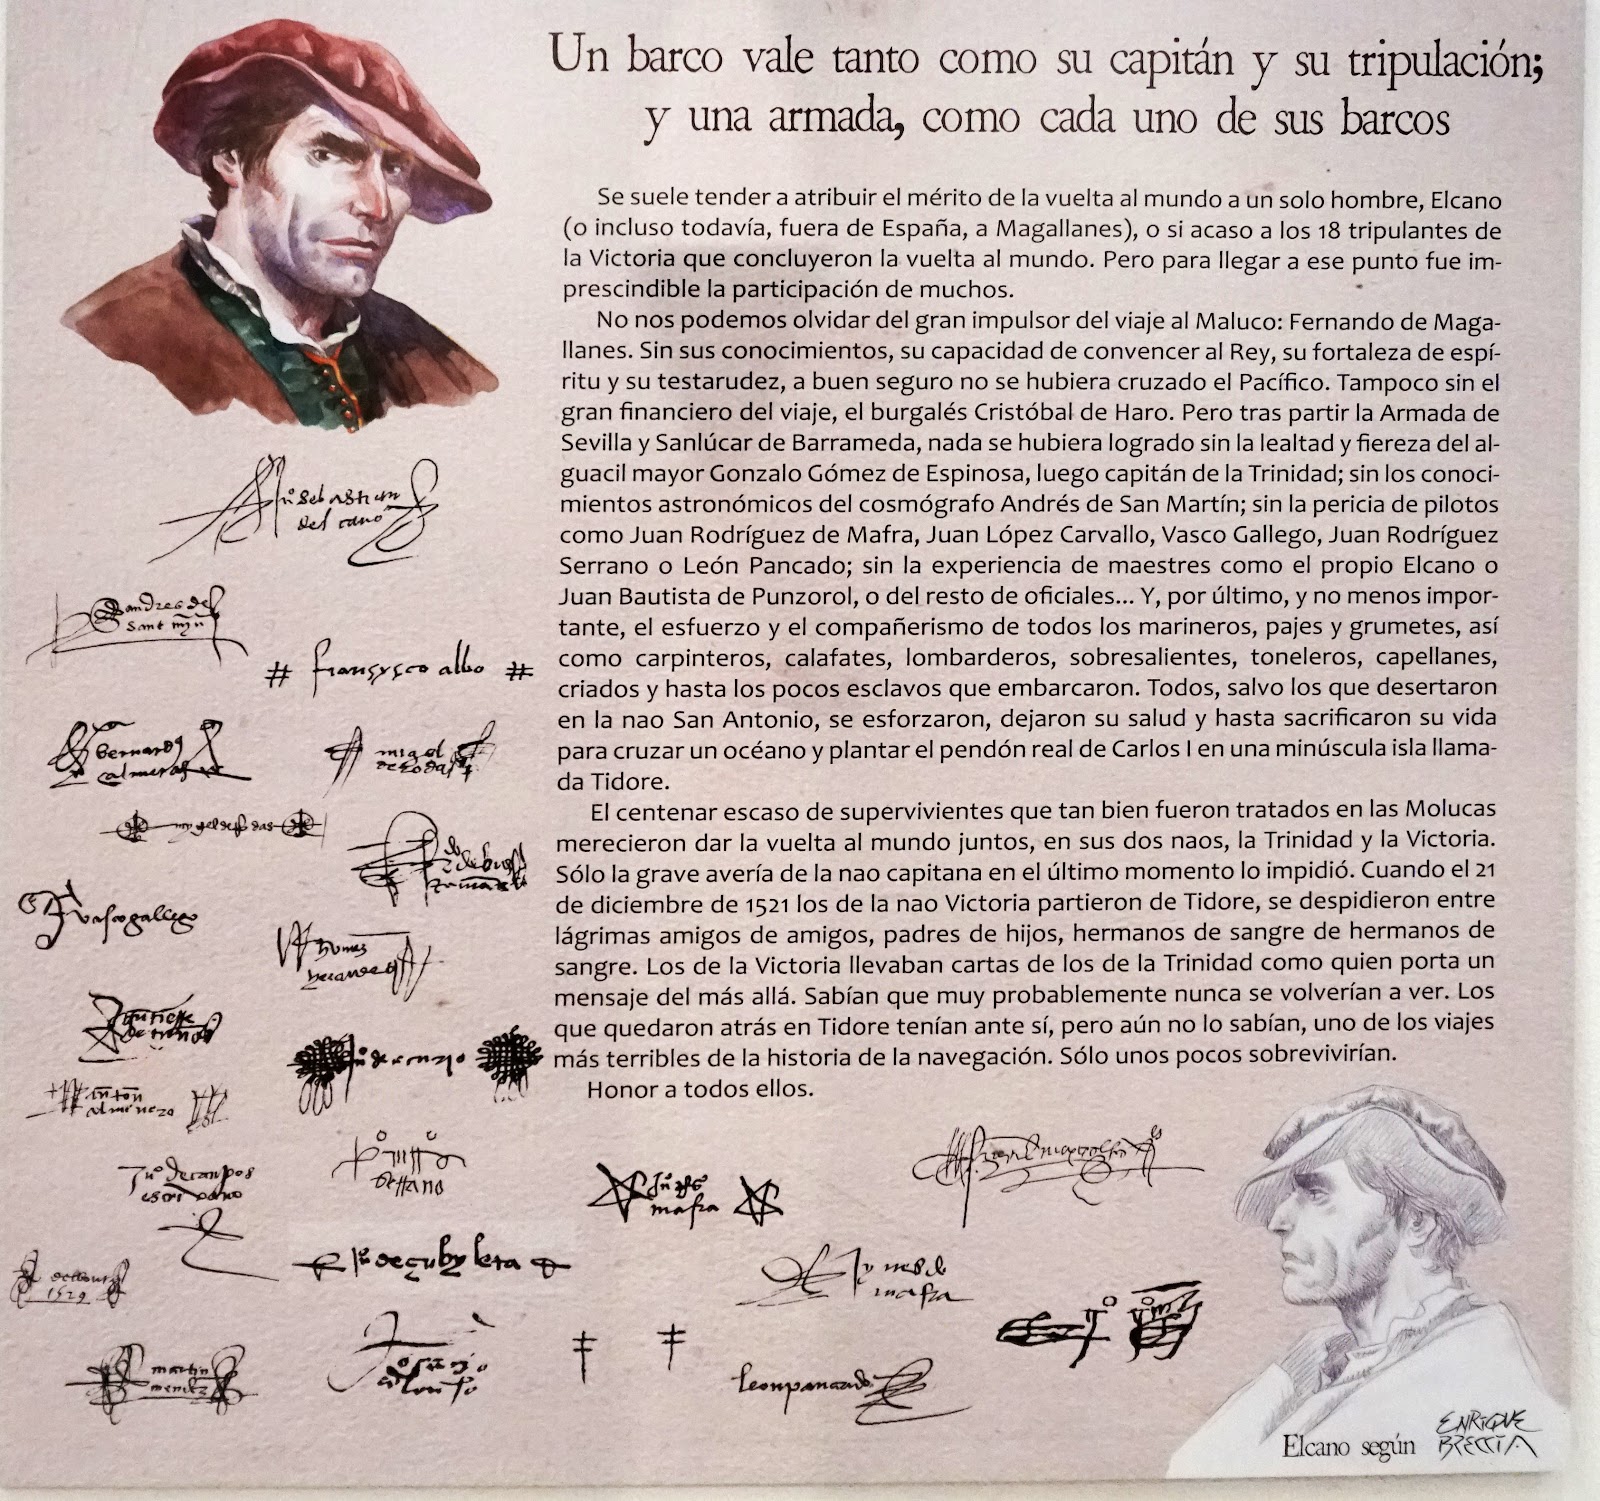 Un barco vale tanto como su capitán y su tripulación;
y una armada, como cada uno de sus barcos
Se suele tender a atribuir el mérito de la vuelta al mundo a un solo hombre, Elcano
(o incluso todavía, fuera de España, a Magallanes), o si acaso a los 18 tripulantes de
la Victoria que concluyeron la vuelta al mundo. Pero para llegar a ese punto fue im-
prescindible la participación de muchos.
No nos podemos olvidar del gran impulsor del viaje al Maluco: Fernando de Maga-
llanes. Sin sus conocimientos, su capacidad de convencer al Rey, su fortaleza de espí-
ritu y su testarudez, a buen seguro no se hubiera cruzado el Pacífico. Tampoco sin el
gran financiero del viaje, el burgalés Cristóbal de Haro. Pero tras partir la Armada de
Sevilla y Sanlúcar de Barrameda, nada se hubiera logrado sin la lealtad y fiereza del al-
guacil mayor Gonzalo Gómez de Espinosa, luego capitán de la Trinidad; sin los conoci-
mientos astronómicos del cosmógrafo Andrés de San Martín; sin la pericia de pilotos
como Juan Rodríguez de Mafra, Juan López Carvallo, Vasco Gallego, Juan Rodríguez
Serrano o León Pancado; sin la experiencia de maestres como el propio Elcano o
Juan Bautista de Punzorol, o del resto de oficiales... Y, por último, y no menos impor-
tante, el esfuerzo y el compañerismo de todos los marineros, pajes y grumetes, así
como carpinteros, calafates, lombarderos, sobresalientes, toneleros, capellanes,
criados y hasta los pocos esclavos que embarcaron. Todos, salvo los que desertaron
en la nao San Antonio, se esforzaron, dejaron su salud y hasta sacrificaron su vida
para cruzar un océano y plantar el pendón real de Carlos I en una minúscula isla llama-
da Tidore.
El centenar escaso de supervivientes que tan bien fueron tratados en las Molucas
merecieron dar la vuelta al mundo juntos, en sus dos naos, la Trinidad y la Victoria.
Sólo la grave avería de la nao capitana en el último momento lo impidió. Cuando el 21
de diciembre de 1521 los de la nao Victoria partieron de Tidore, se despidieron entre
lágrimas amigos de amigos, padres de hijos, hermanos de sangre de hermanos de
sangre. Los de la Victoria llevaban cartas de los de la Trinidad como quien porta un
mensaje del más allá. Sabían que muy probablemente nunca se volverían a ver. Los
que quedaron atrás en Tidore tenían ante sí, pero aún no lo sabían, uno de los viajes
más terribles de la historia de la navegación. Sólo unos pocos sobrevivirían.
Honor a todos ellos.
sebastian
del cano
andres de
sant
# fransysco albo #
bernardo
calmeta
migel
de rodas
vasco gallego
anton
martin
mendez
mafra
mafra
leon pancado
Elcano según
ENRIQUE
BRECCIA